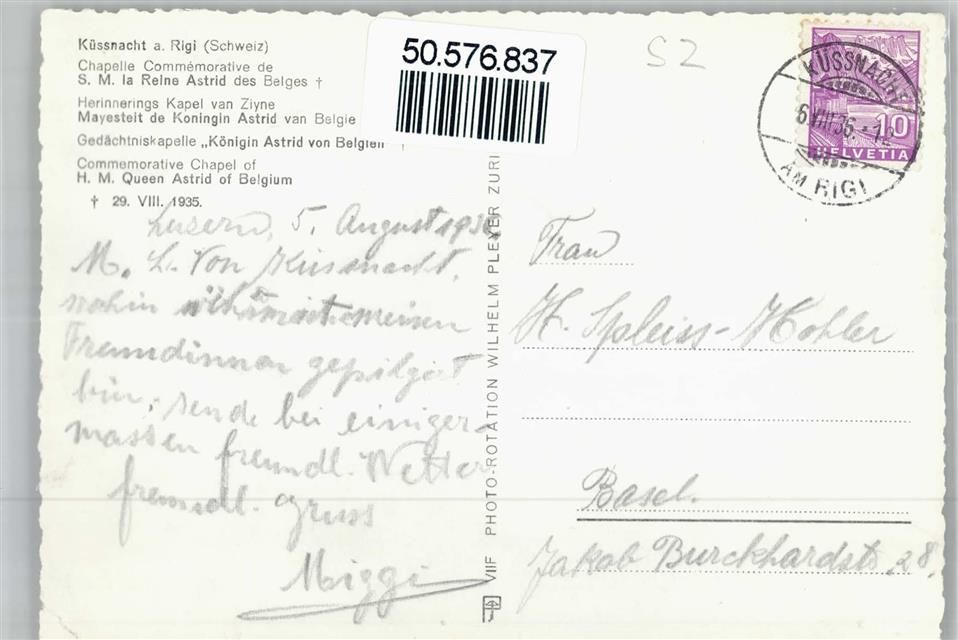 Küssnacht a. Rigi (Schweiz)
Chapelle Commémorative de
S. M. la Reine Astrid des Belges †
Herinnerings Kapel van Ziyne
Mayesteit de Koningin Astrid van Belgie
Gedächtniskapelle „Königin Astrid von Belgien" †
Commemorative Chapel of
H. M. Queen Astrid of Belgium
† 29. VIII. 1935.
50.576.837
SZ
KÜSSNACHT
6.VIII.36.-12
AM RIGI
10
HELVETIA
Luzern, 5. August 1936
M. L. Von Küssnacht,
wohin ich mit meinen
Freundinnen gepilgert
bin, sende bei einiger-
massen freundl. Wetter
freundl. Gruss
Miggi
VIIF PHOTO-ROTATION WILHELM PLEYER ZURI
Frau
H. Spleiss-Hohler
Basel.
Jakob Burckhardtstr. 28.